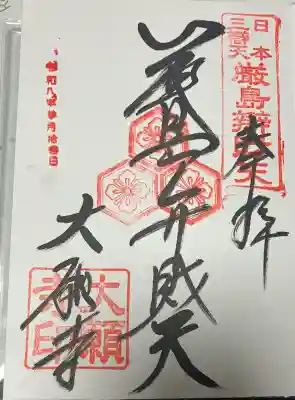 日本
三辨天
厳島辨財天
奉拝
厳島弁財天
大願寺
大願
寺印
令和八年